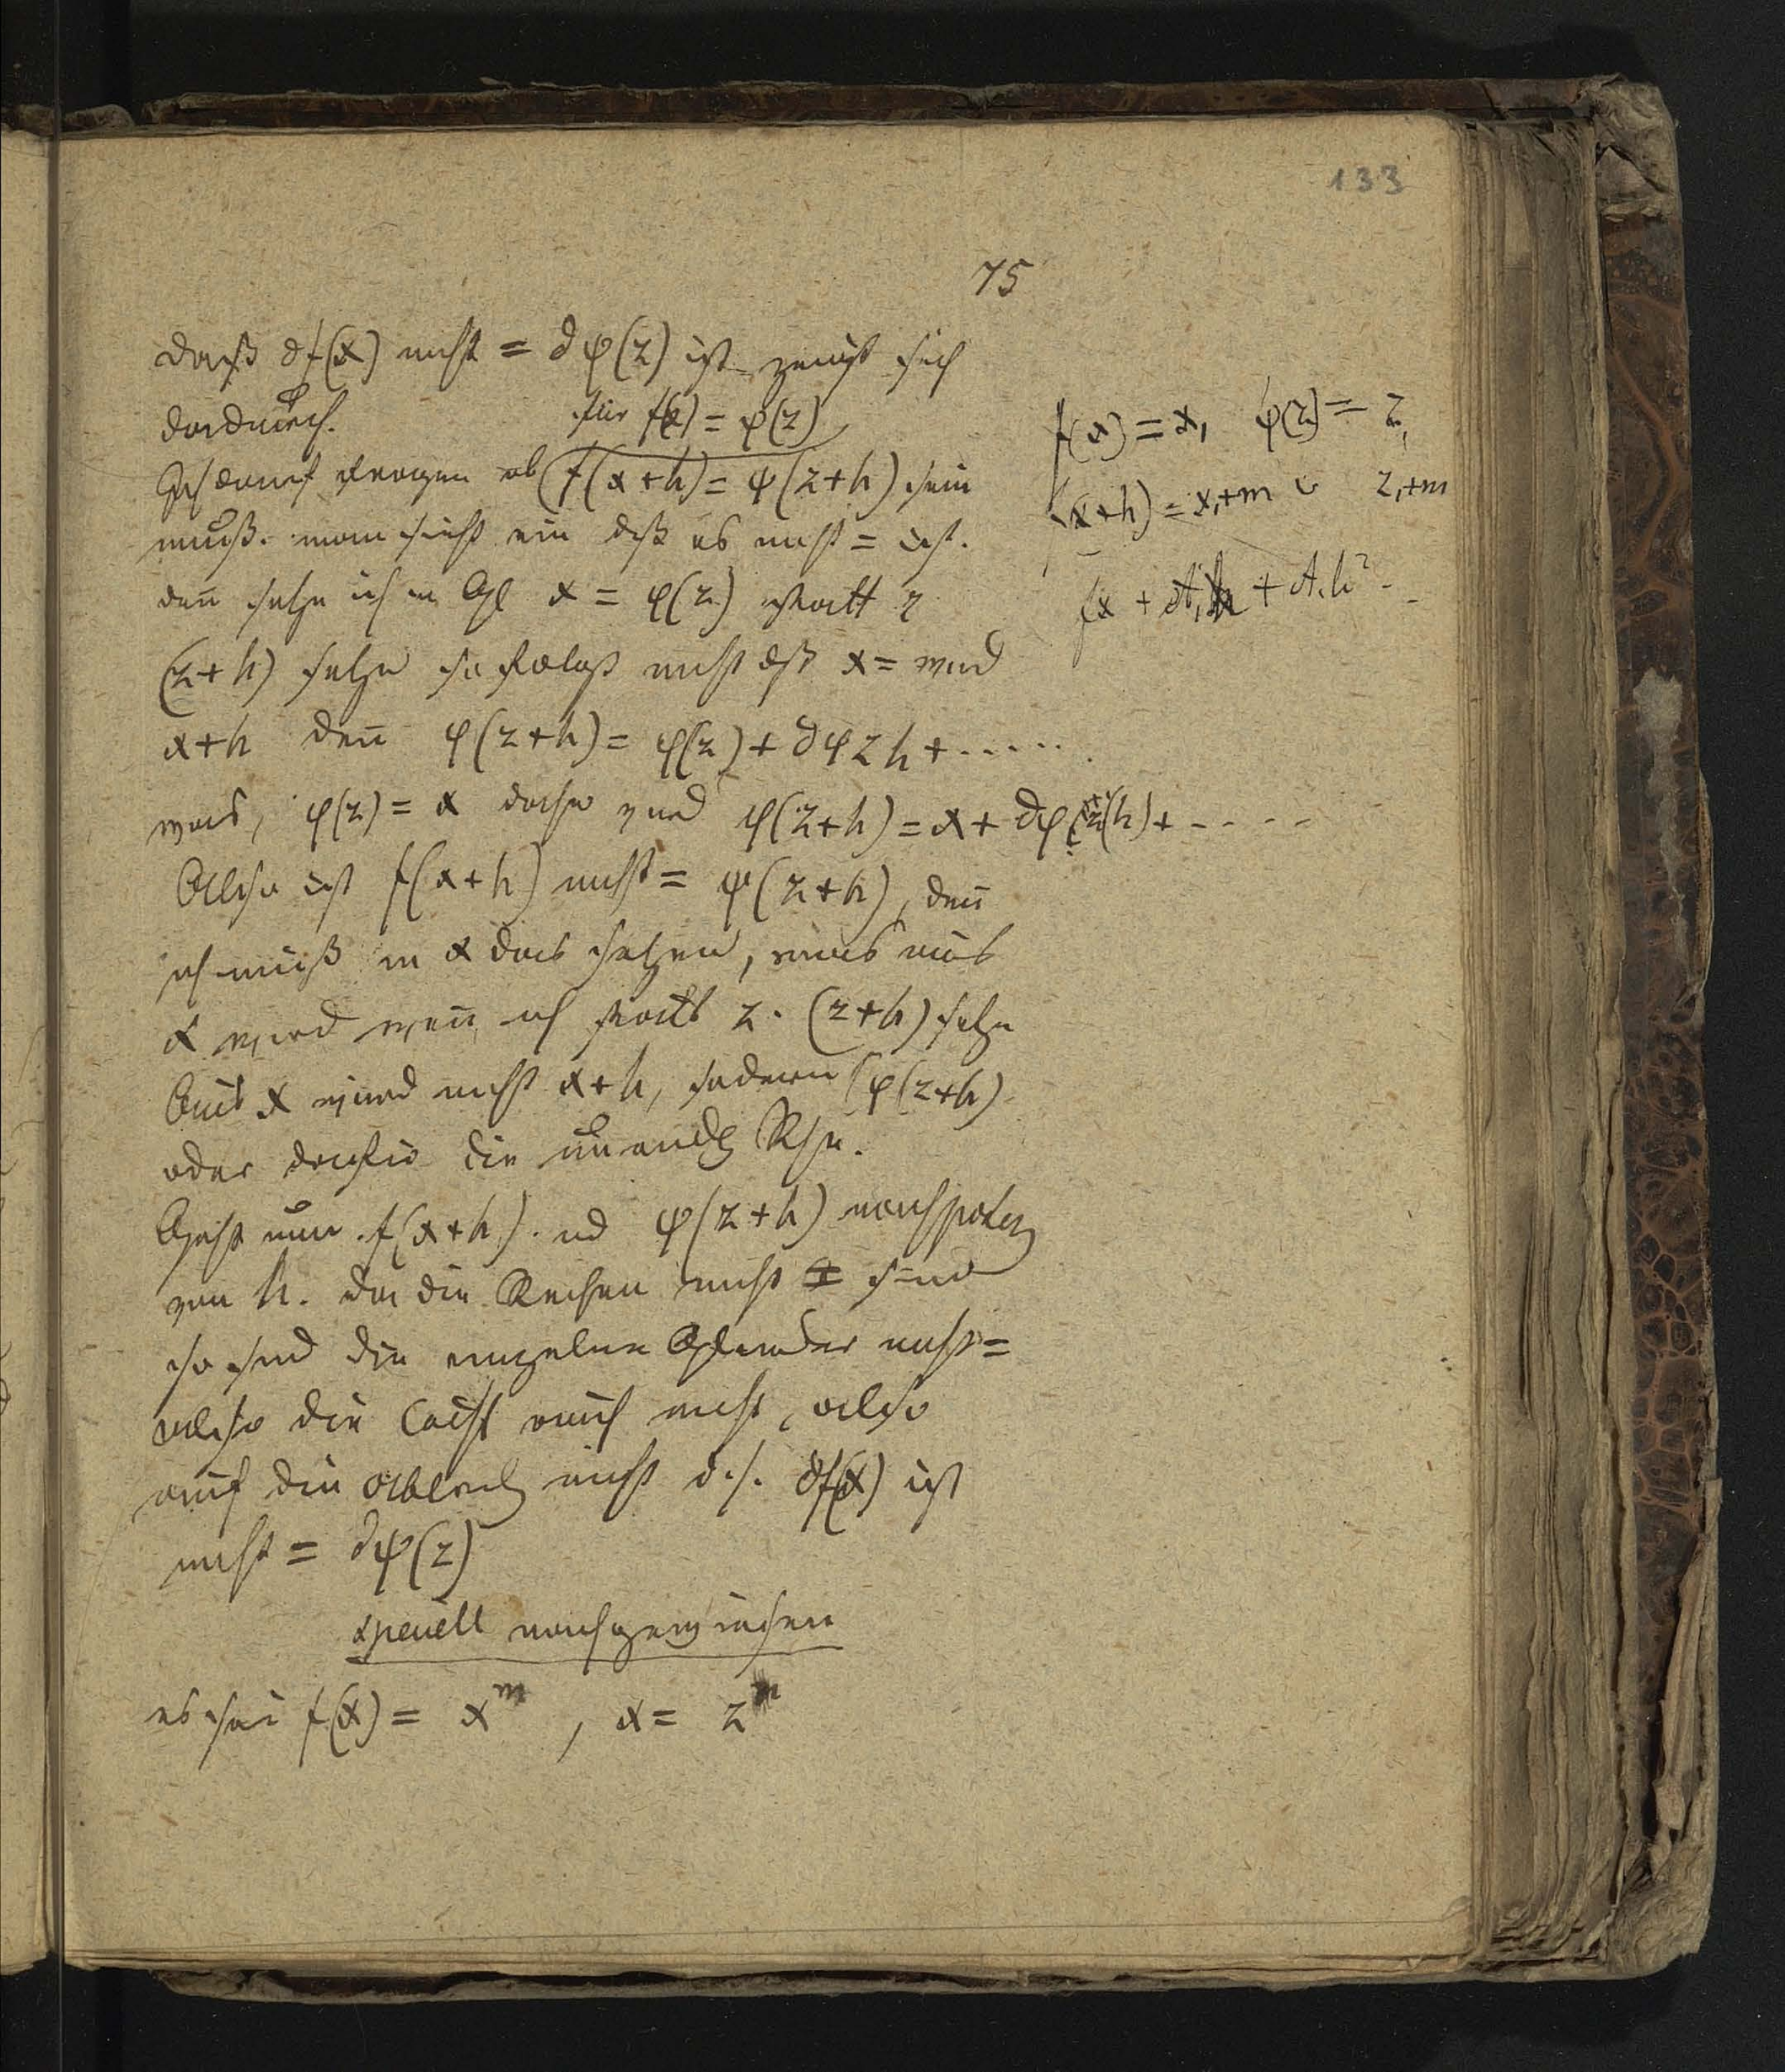 133
75
daß ∂f(x) nicht = ∂φ(z) ist zeigt sich
dadurch.
für f(x) = φ(z)
Ich darf fragen ob f(x+h) = φ(z+h) sein
muß. man sieht ein dß es nicht = ist.
deñ setze ich in Gl x = φ(z) statt z
(z+h) setze so folgt nicht dß x = wird
x+h deñ φ(z+h) = φ(z) + ∂φz h + .....
was, φ(z) = x daher wird φ(z+h) = x + ∂φ(z)(h) + ....
Also ist f(x+h) nicht = φ(z+h), deñ
ich muß in x das setzen, was aus
x wird weñ ich statt z. (z+h) setze
Aus x wird nicht x+h, sodern φ(z+h)
oder dafür die unendl Rhe.
Geht nun f(x+h). ud φ(z+h) nach poten
von h. da die Reihen nicht = sind
so sind die einzelne Glieder nicht =
also die Coeff auch nicht, also
auch die Ableit nicht d.h. ∂f(x) ist
nicht = ∂φ(z)
speciell nachgewiesen
es sei f(x) = x^m , x = z^n
f(x) = x, φ(z) = z,
(x+h) = x,+m z,+m
fx + A,h + A.h² - -